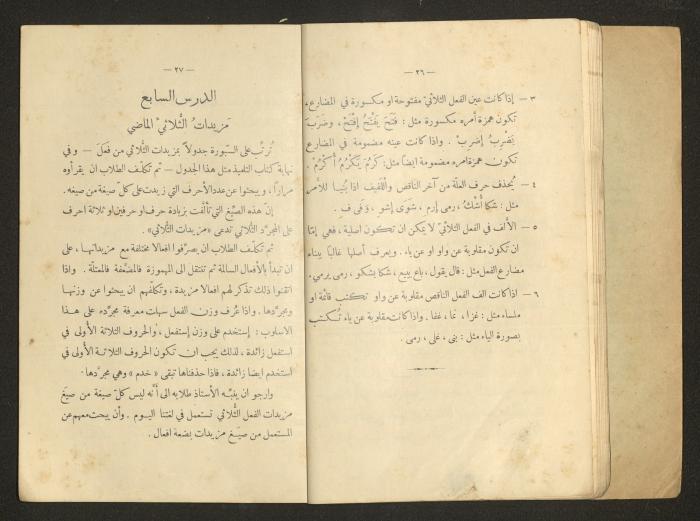 — ٢٦ —
٣ — إذا كانت عين الفعل الثلاثيّ مفتوحة او مكسورة في المضارع،
تكون همزة أمره مكسورة مثل: فَتَحَ يَفْتَحُ إِفْتَحْ، وضَرَبَ
يَضْرِبُ إِضْرِبْ. واذا كانت عينه مضمومة في المضارع
تكون همزة امره مضمومة ايضًا مثل: كَرُمَ يَكْرُمُ أُكْرُمْ.
٤ — يُحذف حرف العلّة من آخر الناقص واللفيف اذا بُنيا للأمر
مثل: شكا أُشْكُ، رمى إرمِ، شَوَى إشوِ، وَفى فِ.
٥ — الألف في الفعل الثلاثيّ لا يمكن ان تكون اصلية، فهي إمّا
ان تكون مقلوبة عن واو او عن ياء. ويعرف أصلها غالبًا ببناء
مضارع الفعل مثل: قال يقول، باع يبيع، شكا يشكو، رمى يرمي.
٦ — اذا كانت الف الفعل الناقص مقلوبة عن واو تكتب قائمة او
ملساء مثل: غزا، نما، غفا. واذا كانت مقلوبة عن ياء تُكتب
بصورة الياء مثل: بنى، غلى، رمى.
— ٢٧ —
الدرس السابع
مَزيداتُ الثُّلاثيْ الماضي
تُرتَّب على السّبورة جدولاً بمزيدات الثُّلاثي من فَعَلَ — وفي
نهاية كتاب التلميذ مثل هذا الجدول — ثم تكلّف الطلاب ان يقرأوه
مرارًا، ويبحثوا عن عدد الأحرف التي زيدت على كلّ صيغة من صيغه.
إنّ هذه الصِّيَغ التي تألّفت بزيادة حرف او حرفين او ثلاثة احرف
على المجرّد الثُّلاثي تدعى «مزيدات الثُّلاثي».
ثم تكلّف الطلاب ان يصرّفوا افعالا مختلفة مع مزيداتها، على
ان تبدأ بالأفعال السالمة ثم تنتقل الى المهموزة فالمضعّفة فالمعتلّة. واذا
اتقنوا ذلك تذكر لهم افعالا مزيدة، وتكلّفهم ان يبحثوا عن وزنها
ومجرّدها. واذا عُرف وزن الفعل سهلت معرفة مجرّده على هذا
الاسلوب: إستخدم على وزن إستفعل، والحروف الثلاثة الأولى في
استفعل زائدة، لذلك يجب ان تكون الحروف الثلاثة الأولى في
استخدم ايضا زائدة، فاذا حذفناها تبقى «خدم» وهي مجرّدها.
وارجو ان ينبّه الأستاذ طلابه الى أنَّه ليس كلّ صيغة من صِيَغ
مزيدات الفعل الثُّلاثي تستعمل في لغتنا اليوم. وأن يبحث معهم عن
المستعمل من صِيَغ مزيدات بضعة افعال.